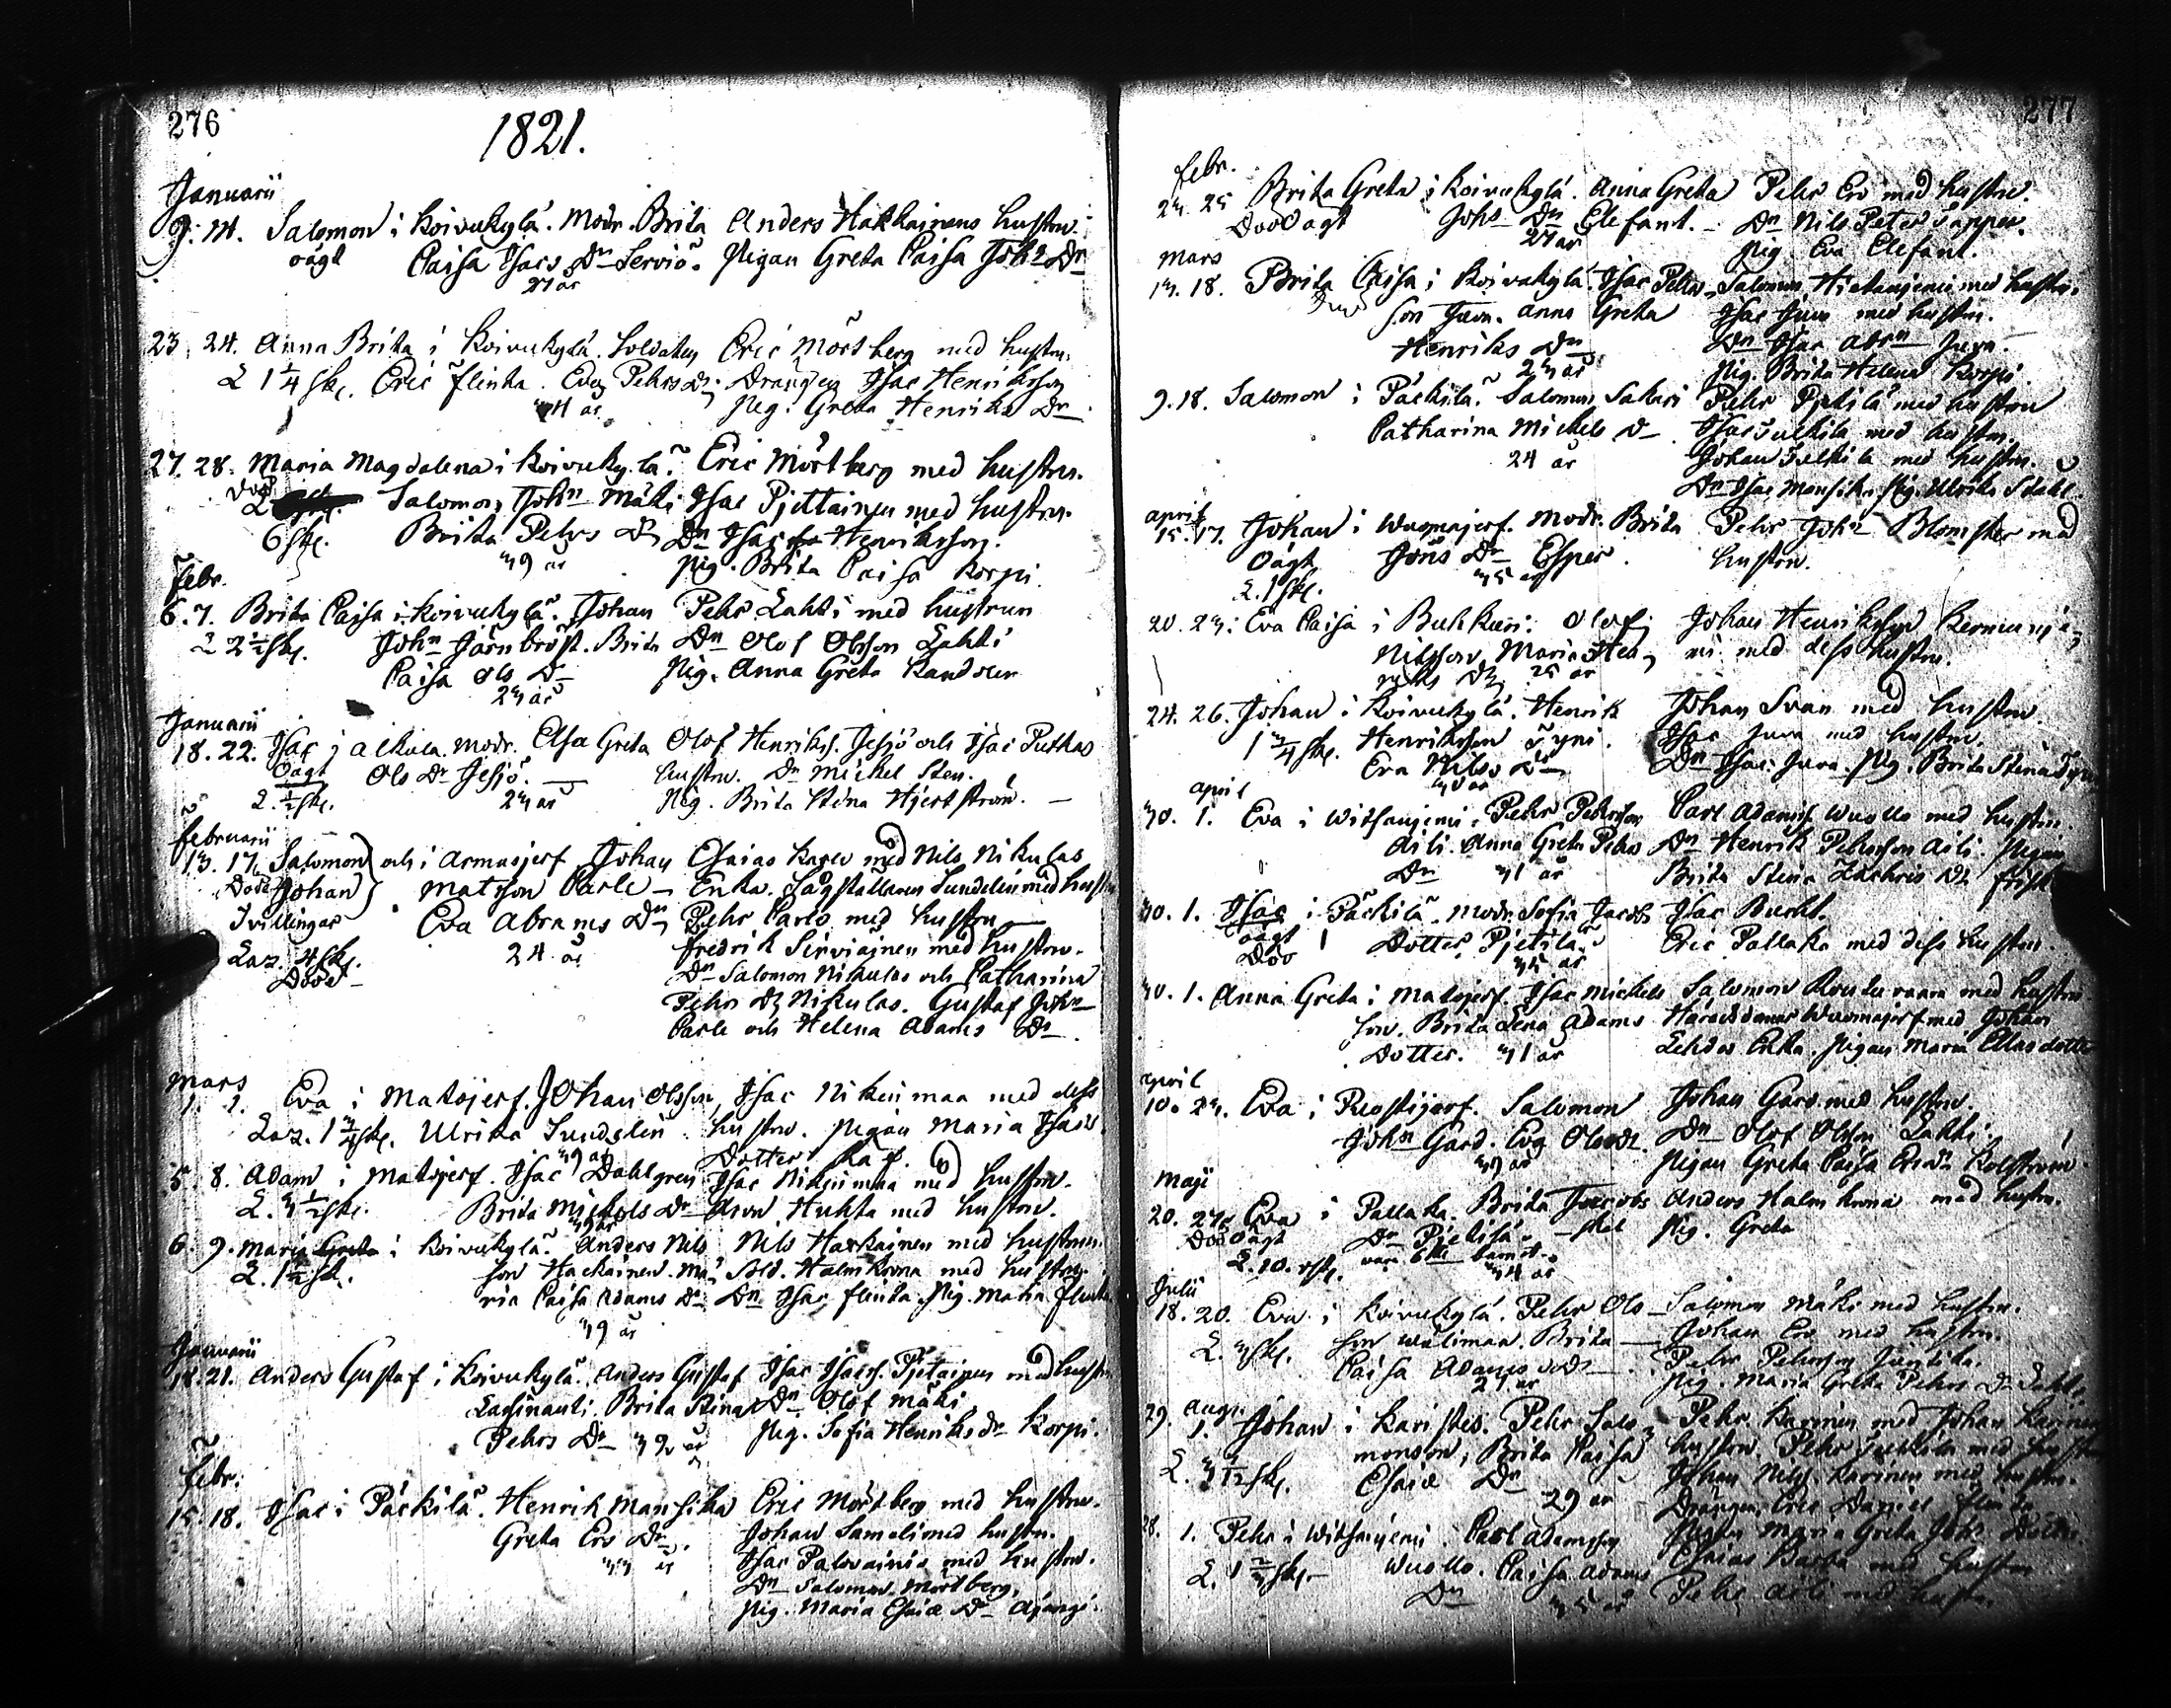 276
1821.
Januarii
9. 14. Salomon i Koivukylä. Modr. Brita Anders Hakkainens hustru.
oägt Caisa Isacs Dr Serviö. Pigan Greta Caisa Johs Dr
27 år
23. 24. Anna Brita i Koivukylä. Soldaten Eric Mörtberg med hustru.
2 1/4 sk. Eric Flinka. Eva Pehrs Dr. Drängen Isac Henriksson
Pig. Greta Henriks Dr
27. 28. Maria Magdalena i Koivukylä. Eric Mörtberg med hustru.
Död Salomon John Mäki Isac Pjettainen med hustru.
6 sk. Brita Pehrs Dr Dn Isac Henriksson.
39 år Pig. Brita Caisa Korpi.
Febr.
6. 7. Brita Caisa i Koivukylä. Johan Pehr Lahti med hustrun
2 2 1/2 sk. John Järnbröst. Brita Dn Olof Olsson Lahti
Caisa Ols Dr Pig. Anna Greta
23 år
Januarii
18. 22. Isac i Alkula. Modr. Elsa Greta Olof Henrikss. Jesjö och Isac Puthas
Oägt Ols Dr Jesjö. hustru. Dn Mickel Sten.
2. 1/2 sk. 23 år Pig. Brita Stina Hjertström.
Februarii
13. 17. Salomon och i Armasjerf Johan Esaias Karlo med Nils Nikulas
Döde Johan Matsson Carle Enka. Lägställaren Sundelin med hustru
Tvillingar Eva Abrams Dr Pehr Carls med hustru
Laz. 4 sk. 24 år Fredrik Serviainen med hustru.
Döde Dn Salomon Nikulas och Catharina
Pehrs Dr Nikulas. Gustaf Johs
Carle och Helena Adams Dr
Mars
1. 1. Eva i Matojerf. Johan Olsson, Isac Nikunmaa med dess
Laz. 1 3/4 sk. Ulrika Sundelin hustru. Pigan Maria Isacs
39 år Dotter
5. 8. Adam i Matojerf. Isac Dahlgren Isac Nikunmaa med hustru.
2. 3 1/2 sk. Brita Mickels Dr Aron Huhta med hustru.
6. 9. Maria Greta i Koivukylä. Anders Nils Nils Hackainen med hustrun.
2. 1 1/2 sk. son Hackainen. Ma- Sold. Halmkrona med hustru.
ria Caisa Adams Dr Dn Isac Flinka. Pig. Maria Flinka
39 år
Januarii
18. 21. Anders Gustaf i Koivukylä. Anders Gustaf Isac Isacs. Pjetainen med hustru
Lasinanti. Brita Stina Dn Olof Mäki
Pehrs Dr 32 år Pig. Sofia Henriks dr Korpi.
Febr.
15. 18. Isac i Päckilä. Henrik Mansika Eric Mörtberg med hustru.
Greta Ers Dr. Johan Sameli med hustru.
33 år Isac Palovainio med hustru.
Dn Salomon Mörtberg.
Pig. Maria Esaiæ Dr
277
Febr.
23. 25 Brita Greta i Koivukylä. Anna Greta Pehr Ers med hustru.
Död Oägt Johs Dr Elefant. Dn Nils Peter
27 år Pig. Eva Elefant.
Mars
13. 18. Brita Caisa i Koivukylä. Isac Pehrs- Salomon Hietaniemi med hustru.
son Juva. Anna Greta Isac Juva med hustru.
Henriks Dr Dn Isac Abrn Juva
23 år Pig. Brita Helena Korpi.
9. 18. Salomon i Päckilä. Salomon Sakari Pehr Pjetilä med hustru
Catharina Mickels Dr. Isac Juckila med hustru.
24 år Johan Juckila med hustru.
Dn Isac Mansika. Pig. Ulrika Ståhl.
April
15. 17. Johan i Wuomajerf. Modr. Brita Pehr Johs Blomster med
Oägt Jöns Dr Esper. hustru.
2. 1 sk. 35 år
20. 23. Eva Caisa i Buhkuri. Olof Johan Henriksson Kerninie-
Nilsson. Maria Hen- mi med dess hustru.
riks Dr 25 år
24. 26. Johan i Koivukylä. Henrik Johan Svan med hustru.
1 3/4 sk. Henriksson Tyni. Isac Juva med hustru.
Eva Nils Dr Dn Isac Juva. Pig. Brita Stina Tyni
April
30. 1. Eva i Witsaniemi. Pehr Pehrsson Carl Adamss. Wuollo med hustru.
Aili. Anna Greta Pehrs Dn Henrik Pehrsson Aili. Pigan
Dr 31 år Brita Stina Zachris Dr Frisk
30. 1. Isac i Päckilä. Modr. Sofia Jacobs Isac Bucht.
Oägt Dotter Pjetilä. Eric Pallaka med dess hustru.
Död 35 år
30. 1. Anna Greta i Matojerf. Isac Mickels Salomon Routuvaara med hustru
son. Brita Lena Adams Häradsdomar Wuomajerf med Johan
Dotter. 31 år Lehdos Enka. Pigan Maria Elias dotter
April
10. 23. Eva i Ruostijerf. Salomon Johan Gard med hustru.
Johs Gard. Eva Ols dr. Dn Olof Olsson Lahti.
39 år Pigan Greta Caisa Ers dr
Maji
20. 27. Eva i Pallaka. Brita Jacobs Anders Halmkrona med hustru.
Död Oägt Dr Pjetilä. Pig. Greta
2. 10. sk. vars 6te barn 34 år
Julii
18. 20. Eva i Koivukylä. Pehr Ols- Salomon Mäki med hustru.
2. 3 sk. son Wälimaa. Brita Johan Ers med hustru.
Caisa Adams Dr Pehr Pehrsson
27 år Pig. Maria Greta Pehrs Dr Lahti
Aug.
29. 1. Johan i Karistes. Pehr Salo- Pehr Karinen med Johan Karinen
monson, Brita Caisa hustru. Pehr Juckila med hustru
Esaiæ Dr Johan Nilss. Karinen med hustru.
29 år Drängen Eric Daniel Flinka
Pigan Maria Greta Johs Dotter.
28. 1. Pehr i Witsaniemi. Carl Adamsson Esaias Barba med hustru
Wuollo. Caisa Adams Pehr Aili med hustru.
Dr 35 år